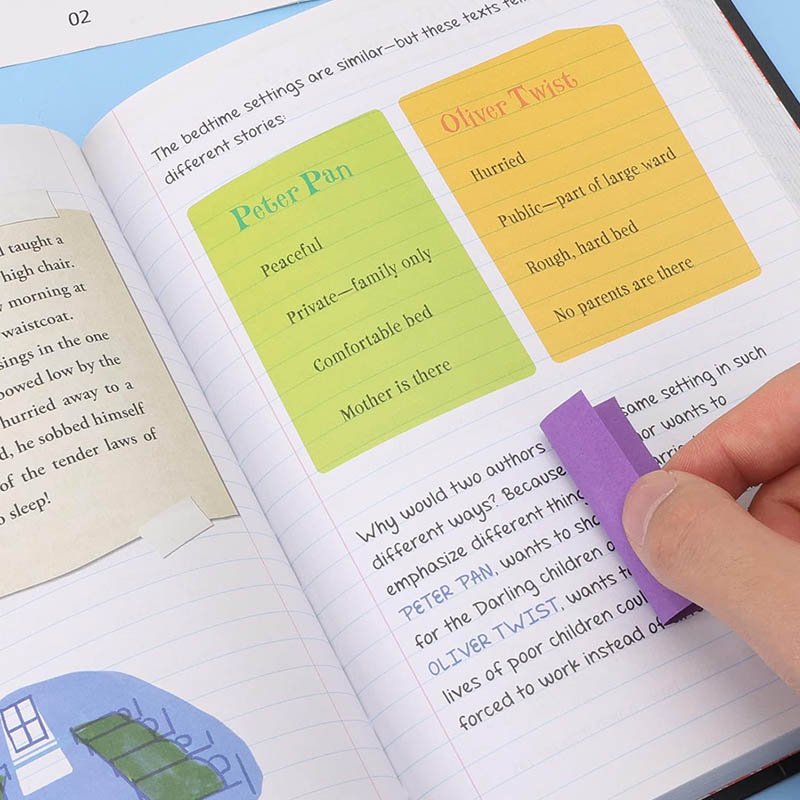 02
taught a
high chair.
morning at
waistcoat.
sings in the one
bowed low by the
hurried away to a
d, he sobbed himself
of the tender laws of
sleep!
The bedtime settings are similar—but these texts tell
different stories:
Peter Pan
Peaceful
Private—family only
Comfortable bed
Mother is there
Oliver Twist
Hurried
Public—part of large ward
Rough, hard bed
No parents are there
Why would two authors same setting in such
different ways? Because or wants to
emphasize different thing
PETER PAN, wants to sho
for the Darling children
OLIVER TWIST, wants t
lives of poor children coul
forced to work instead of